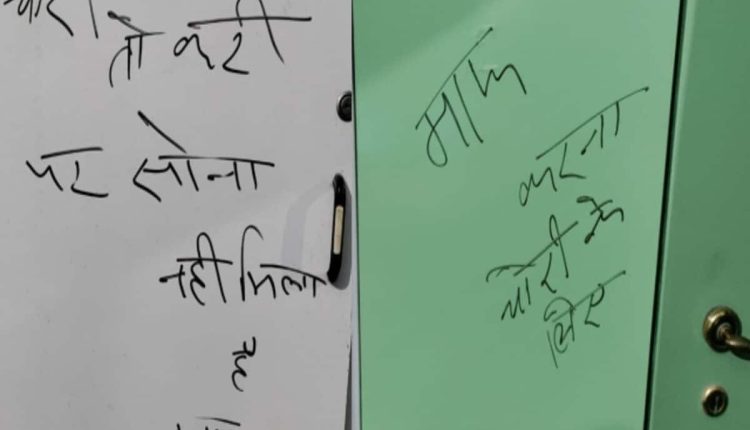 चोरी तो करी
पर सोना
नही मिला
है
माफ
करना
चोरी के
लिए